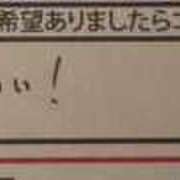 希望ありましたらコ
いい!